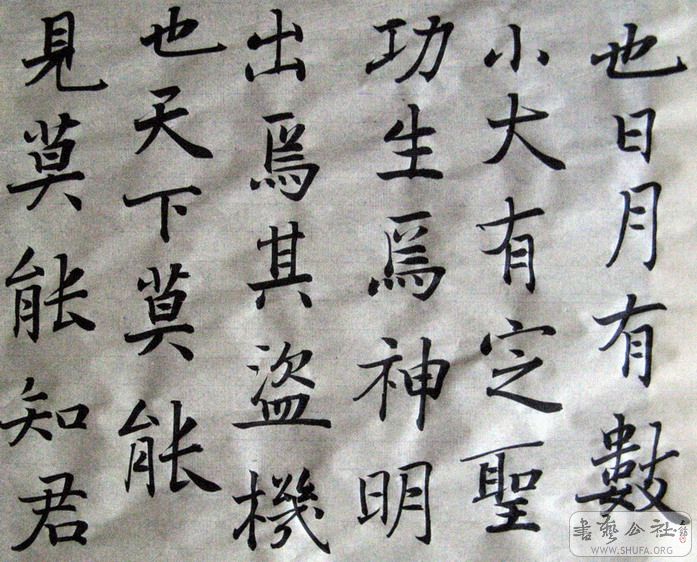 也日月有數
小大有定聖
功生焉神明
出焉其盜機
也天下莫能
見莫能知君
書藝公社
WWW.SHUFA.ORG